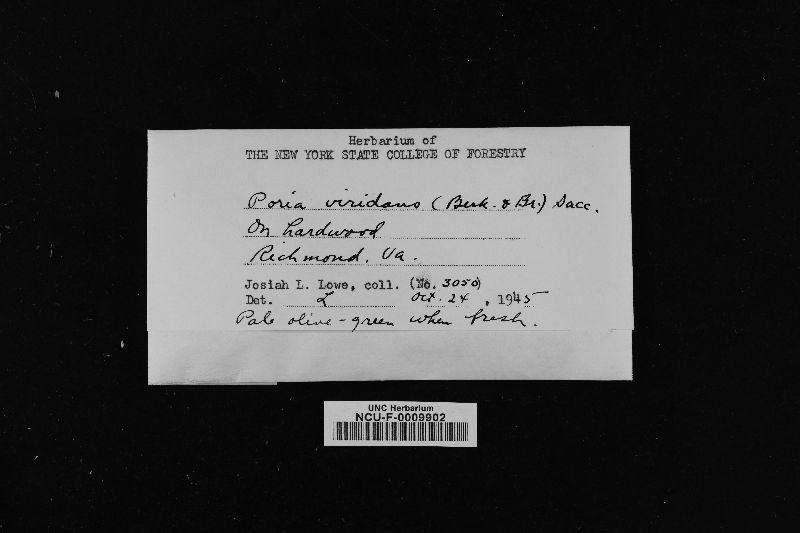 Herbarium of
THE NEW YORK STATE COLLEGE OF FORESTRY
Poria viridans (Berk. & Br.) Sacc.
On hardwood
Richmond, Va.
Josiah L. Lowe, coll. (No. 3050)
Det. L Oct. 24, 1945
Pale olive-green when fresh.
UNC Herbarium
NCU-F-0009902